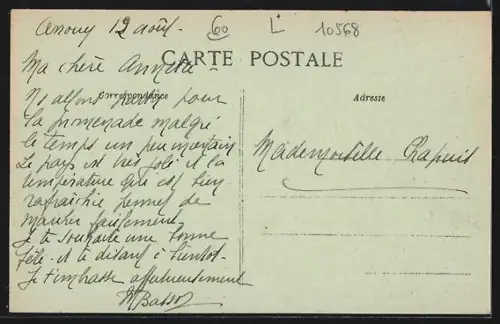 12 août - 60 L 10568
CARTE POSTALE
Ma chère Annette -
Correspondance
Adresse
Ns allons partir pour
la promenade malgré
le temps un peu incertain
Le pays est très joli et la
température qui est bien
rafraichie permet de
marcher facilement.
Je te souhaite une bonne
fête - et te disant à bientôt -
Je t'embrasse affectueusement
Mademoiselle Chapuit